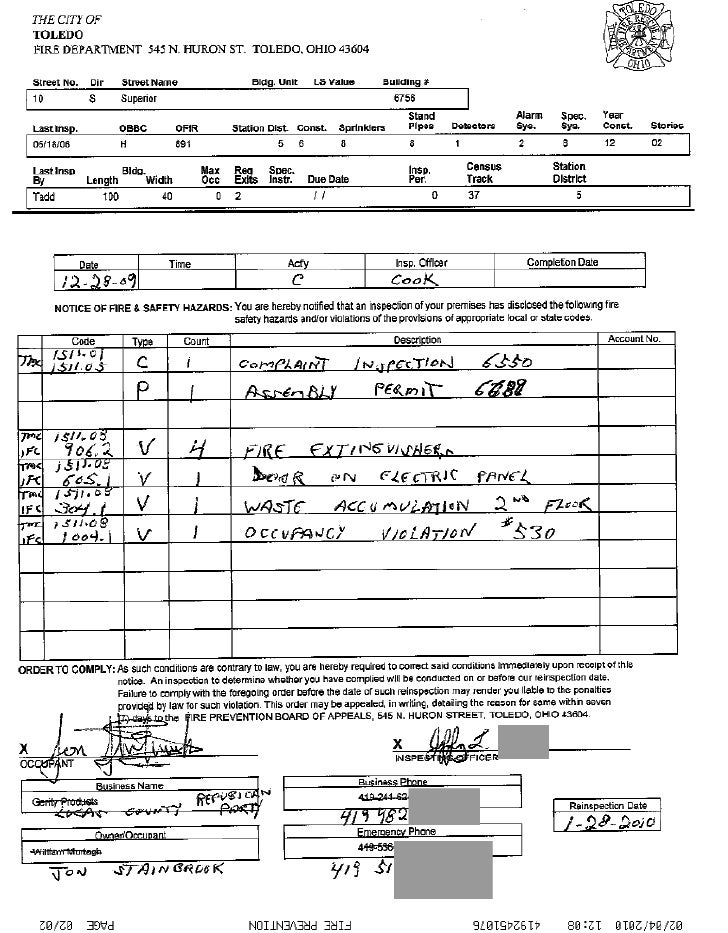 THE CITY OF
TOLEDO
FIRE DEPARTMENT 545 N. HURON ST. TOLEDO, OHIO 43604
TOLEDO
FIRE RESCUE
DEPARTMENT
OHIO
Street No. Dir Street Name Bldg. Unit LS Value Building #
10 S Superior 6756
Last Insp. OBBC OFIR Station Dist. Const. Sprinklers Stand Pipes Detectors Alarm Sys. Spec. Sys. Year Const. Stories
05/16/06 H 691 5 6 8 8 1 2 8 12 02
Last Insp By Length Bldg. Width Max Occ Req Exits Spec. Instr. Due Date Insp. Per. Census Track Station District
Tadd 100 40 0 2 / / 0 37 5
Date Time Acty Insp. Officer Completion Date
12-28-09 C COOK
NOTICE OF FIRE & SAFETY HAZARDS: You are hereby notified that an inspection of your premises has disclosed the following fire
safety hazards and/or violations of the provisions of appropriate local or state codes.
Code Type Count Description Account No.
TMC 1511.01
1511.05 C 1 COMPLAINT INSPECTION 6550
P 1 ASSEMBLY PERMIT
TMC 1511.08
IFC 906.2 V 4 FIRE EXTINGUISHERS
TMC 1511.08
IFC 605.1 V 1 DOOR ON ELECTRIC PANEL
TMC 1511.08
IFC 304.1 V 1 WASTE ACCUMULATION 2ND FLOOR
TMC 1511.08
IFC 1004.1 V 1 OCCUPANCY VIOLATION #530
ORDER TO COMPLY: As such conditions are contrary to law, you are hereby required to correct said conditions immediately upon receipt of this
notice. An inspection to determine whether you have complied will be conducted on or before our reinspection date.
Failure to comply with the foregoing order before the date of such reinspection may render you liable to the penalties
provided by law for such violation. This order may be appealed, in writing, detailing the reason for same within seven
(7) days to the FIRE PREVENTION BOARD OF APPEALS, 545 N. HURON STREET, TOLEDO, OHIO 43604.
X Jon
OCCUPANT
X
INSPECTING OFFICER
Business Name
Gerity Products
LUCAS COUNTY REPUBLICAN PARTY
Owner/Occupant
William Murtagh
JON STAINBROOK
Business Phone
419-241-62
419 982
Emergency Phone
419-536
419 51
Reinspection Date
1-28-2010
02/04/2010 12:08 4192451076 FIRE PREVENTION PAGE 02/02